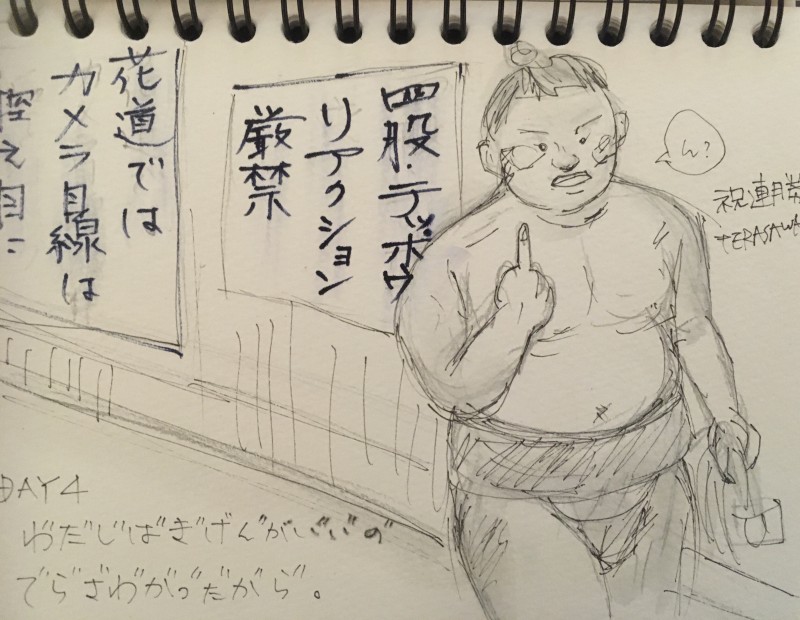 四股・テッポウ
リアクション
厳禁
花道では
カメラ目線は
控え目に
ん?
祝連勝
TERASAWA
DAY4
わ゛だじばぎげん゛がい゛い゛の゛
でら゛ざわ゛がっ゛だがら゛。